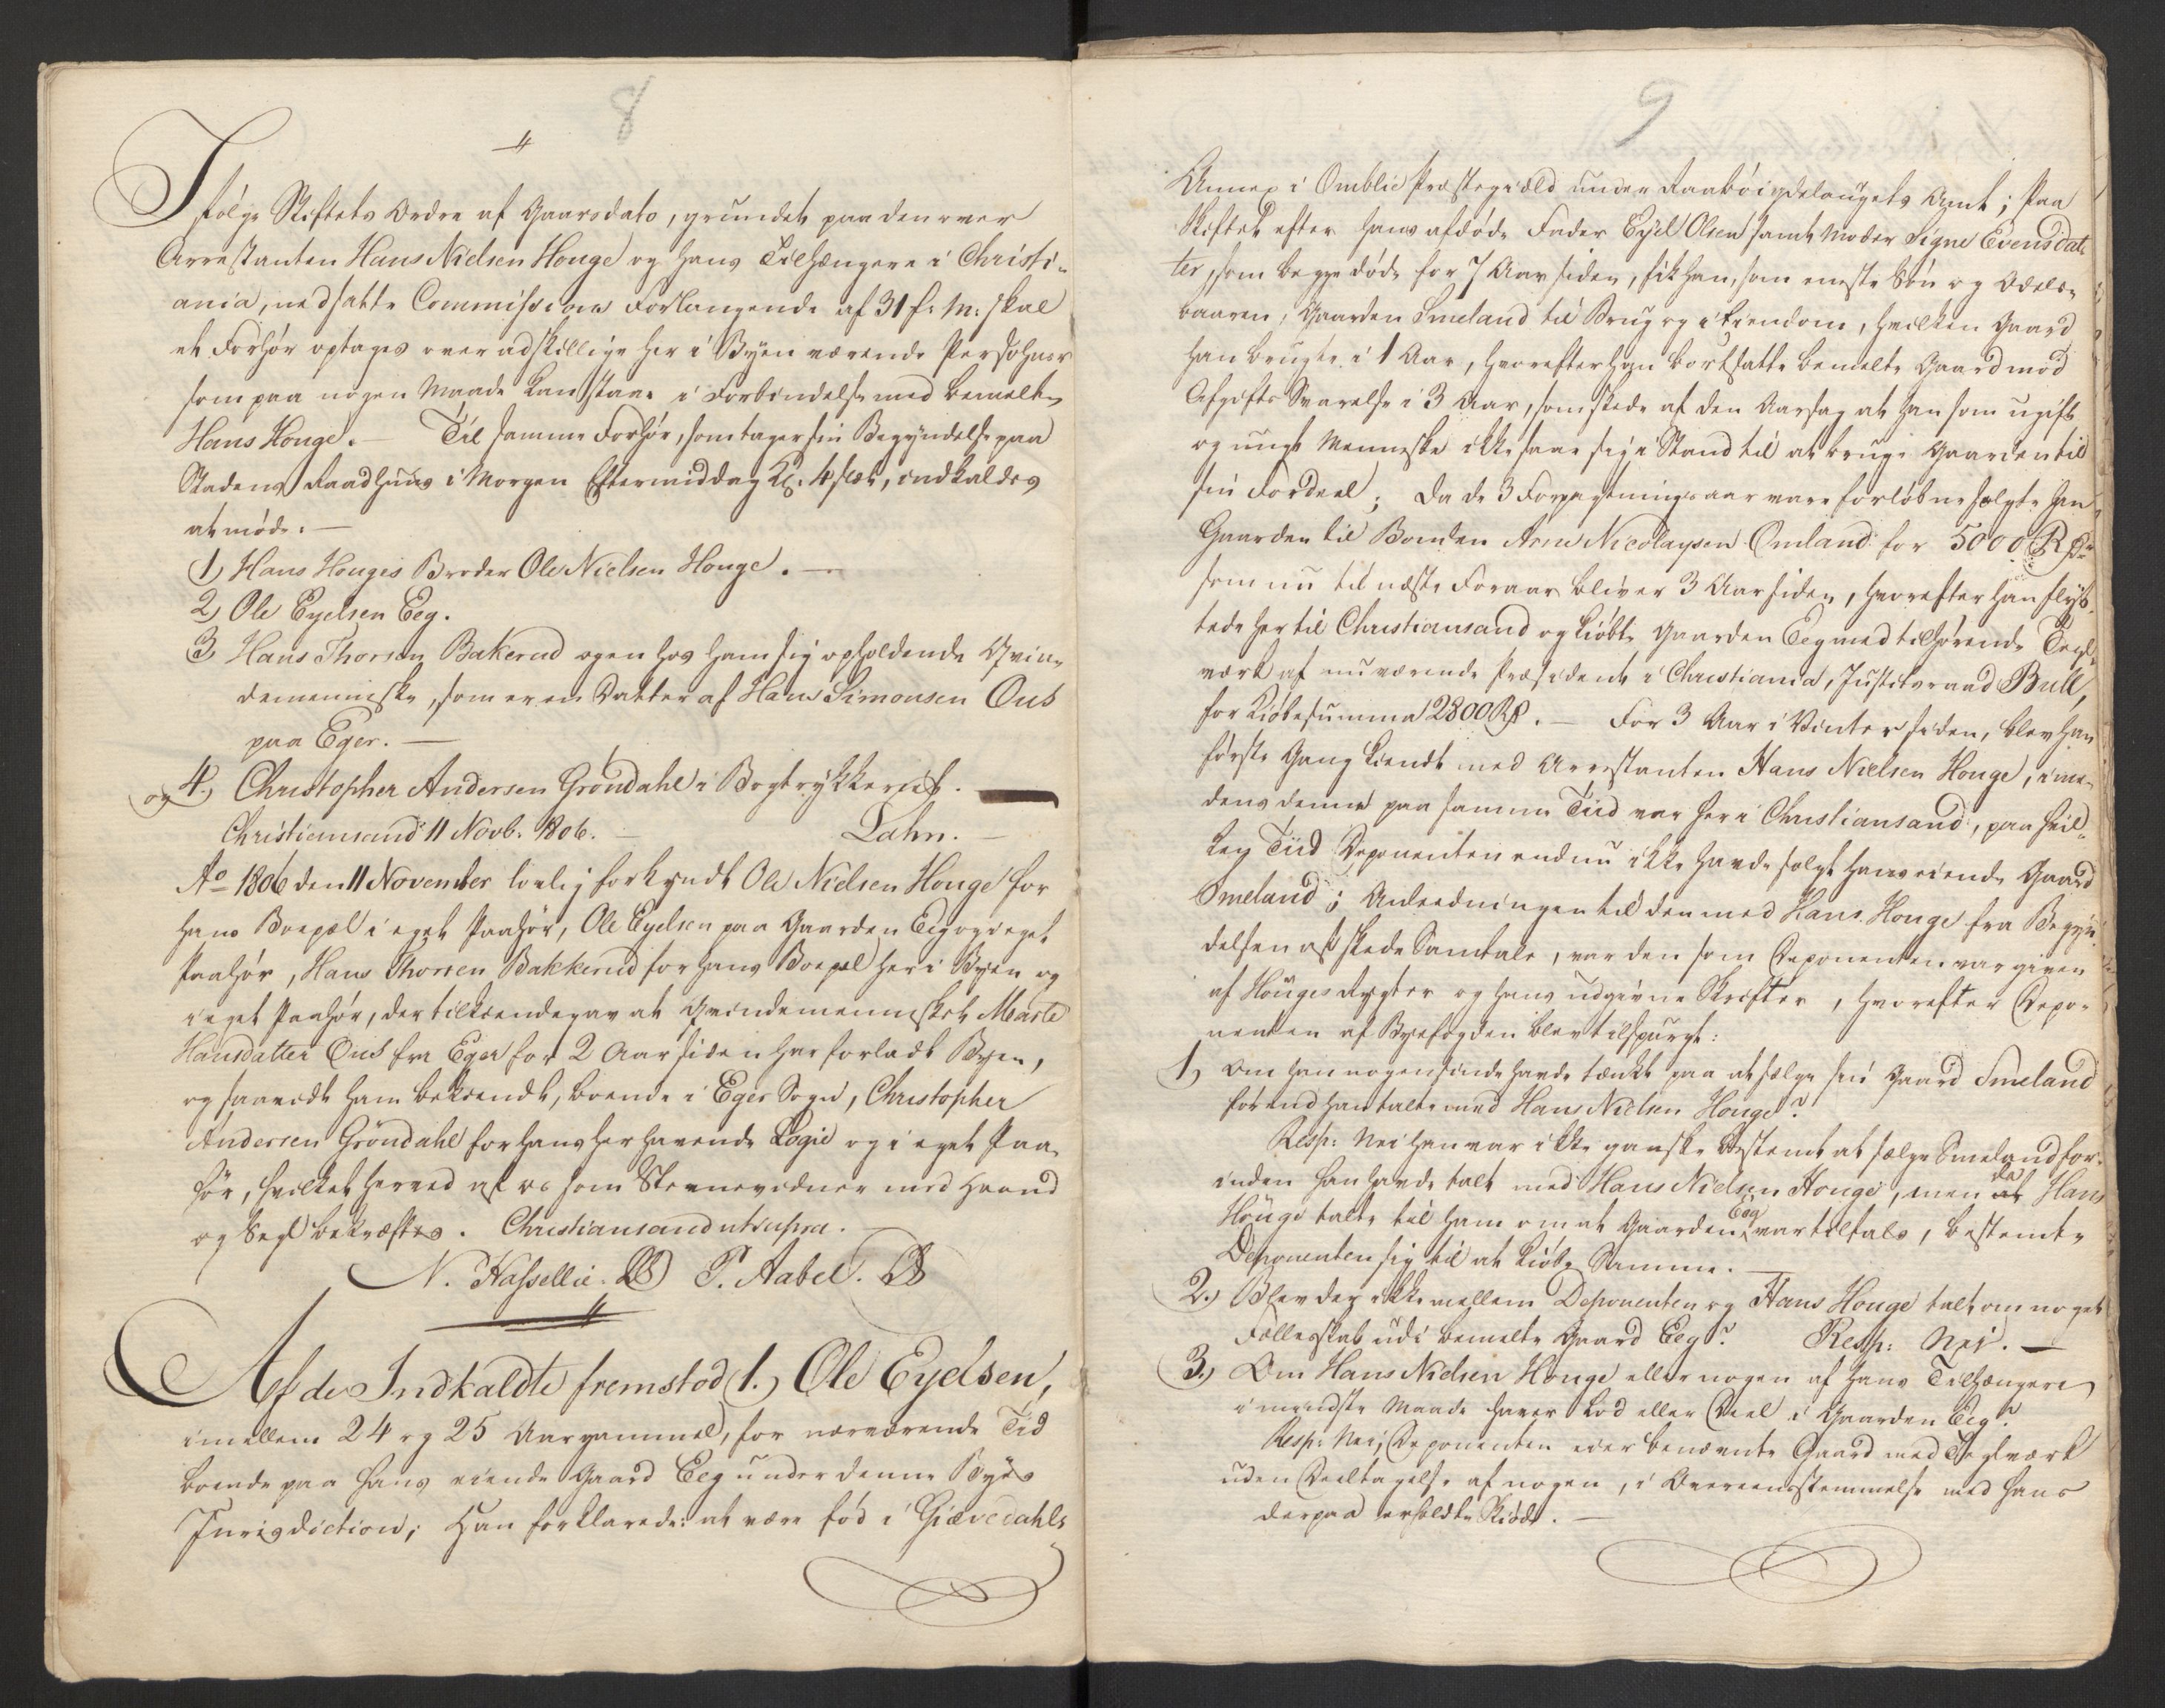 8
Ifølge Stiftets Ordre af Gaarsdato, grundet paa den over
Arrestanten Hans Nielsen Houge og hans Tilhængere i Christi-
ania, nedsatte Commissions Forlangende af 31 f: M: skal
et Forhør optages over adskillige her i Byen værende Persohner
som paa nogen Maade kan staae i Forbindelse med bemelte
Hans Houge. — Til samme Forhør, som tager sin Begyndelse paa
Stadens Raadhuus i Morgen Eftermiddag Kl. 4 slet, indkaldes
at møde: —
1) Hans Houges Broder Ole Nielsen Houge. —
2) Ole Eyelsen Eeg.
3) Hans Thorsen Bakerud og en hos ham sig opholdende Qvin-
demenniske, som er en Datter af Hans Simonsen Ous
paa Eger. —
og 4.) Christopher Andersen Gröndahl i Bogtrykkeriet. —
Christiansand 11 Novb. 1806. — Lahn. —
Ao 1806 den 11 November lovlig forkyndt Ole Nielsen Houge for
hans Boepæl i eget Paahør, Ole Eyelsen paa Gaarden Eeg og i eget
Paahør, Hans Thorsen Bakkerud for hans Boepæl her i Byen og
i eget Paahør, der tilkiendegav at Qvindemennisket Marte
Hansdatter Ous fra Eger for 2 Aar siden har forladt Byen,
og saavidt ham bekiendt, boende i Eger Sogn, Christopher
Andersen Gröndahl for hans her havende Logie og i eget Paa-
hør, hvilket herved af os som Stevnevidner med Haand
og Segl bekræftes. Christiansand ut supra. —
N. Hassellie. LS T. Aabel. LS
Af de Indkaldte fremstod 1.) Ole Eyelsen,
imellem 24 og 25 Aar gammel, for nærværende Tid
boende paa hans eiende Gaard Eeg under denne Byes
Jurisdiction; Han forklarede: at være fød i Giævedahls
9
Annex i Omblie Præstegield under Raabøigdelaugets Amt; Paa
Skiftet efter hans afdøde Fader Eyel Olsen samt Moder Signe Evensdat-
ter, som begge døde for 7 Aar siden, fik han, som eneste Søn og Odels-
baaren, Gaarden Smeland til Brug og i Eiendom, hvilken Gaard
han brugte i 1 Aar, hvorefter han bortsatte bemelte Gaard mod
Afgifts Svarelse i 3 Aar, som skede af den Aarsag at han som ugift
og ungt Menniske ikke saae sig i Stand til at bruge Gaarden til
sin Fordeel; Da de 3 Forpagtningsaar vare forløbne solgte han
Gaarden til Bonden Arne Nicolaysen Omland for 5000 Rdr
som nu til næste Foraar bliver 3 Aar siden, hvorefter han flyt-
tede her til Christiansand og kiøbte Gaarden Eeg med tilhørende Tegl-
værk af nuværende Præsident i Christiania, Justitsraad Bull,
for Kiøbesumma 2800 Rd. — For 3 Aar i Vinter siden, blev han
første Gang kiendt med Arrestanten Hans Nielsen Houge, ime-
dens denne paa samme Tiid var her i Christiansand, paa hvil-
ken Tiid Deponenten endnu ikke havde solgt hans eiende Gaard
Smeland; Anledningen til den med Hans Houge fra Begyn-
delsen af skede Samtale, var den som Deponenten var given
af Houges Rygter og hans udgivne Skrifter, hvorefter Depo-
nenten af Byefogden blev tilspurgt:
1) Om han nogensinde havde tænkt paa at sælge sin Gaard Smeland
førend han talte med Hans Nielsen Houge?
Resp: Nei han var ikke ganske bestemt at sælge Smeland for-
inden han havde talt med Hans Nielsen Houge, men da Hans
Houge talte til ham om at Gaarden Eeg var tilfals, bestemte
Deponenten sig til at kiøbe Samme. —
2.) Blev der ikke mellem Deponenten og Hans Houge talt om noget
Fællesskab udi bemelte Gaard Eeg? Resp: Nei. —
3.) Om Hans Nielsen Houge eller nogen af hans Tilhængere
i mindste Maade haver Lod eller Deel i Gaarden Eeg?
Resp: Nei, Deponenten eier benævnte Gaard med Teglværk
uden Deeltagelse af nogen, i Overeensstemmelse med hans
derpaa erholdte Skiøde. —